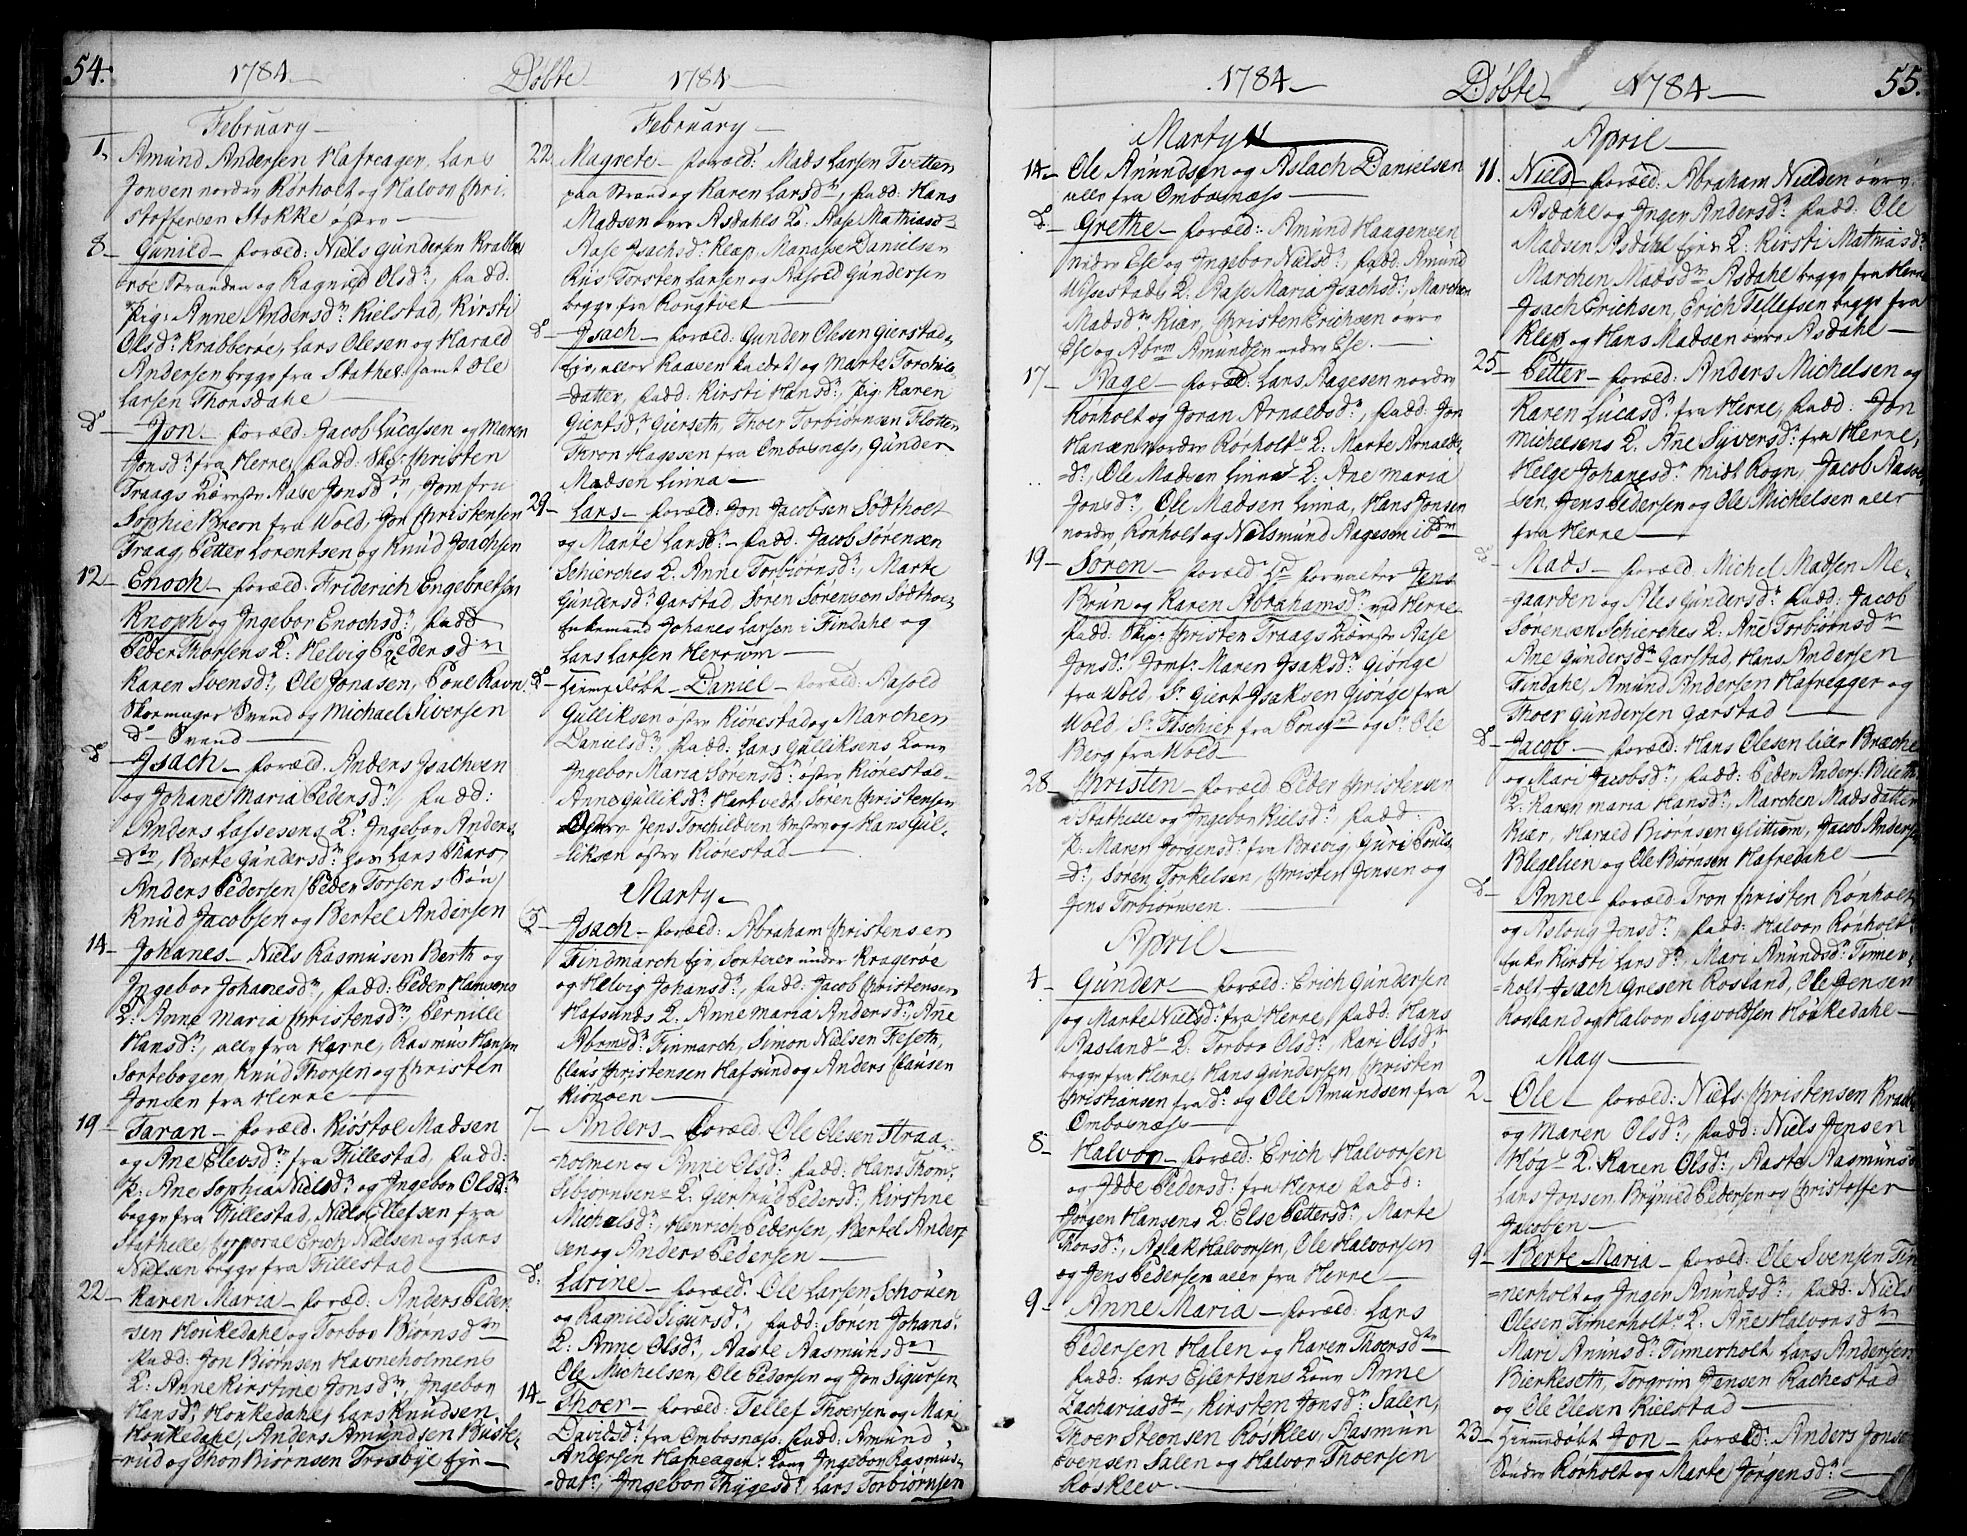 54.
1784 Döbte 1784
February
1. Amund Andersen Hafreager, Lars
Jonsen nordre Rörholt og Halvor Chri-
stoffersen Stokke östre
8 Gunild foræld: Niels Gundersen Krabbe-
röe Stranden og Ragnild Olsdr, fadd:
Pig: Anne Andersdr Rielstad, Kirsti
Olsdr Krabberöe, Lars Olesen og Harald
Andersen begge fra Stathel: samt Ole
Larsen Thorsdahl
d Jon foræld. Jacob Lucassen og Maren
Jonsdr fra Herre, fadd: Skpr Christen
Traags Kierste Aase Jonsdr, Jomfru
Sophie Breon fra Wold, Jon Christensen
Traag, Petter Lorentsen og Knud Isachsen
12 Enoch foræld: Friderich Engebretsen
Knoph og Ingebor Enochsdr, fadd
Peder Thorsens K: Helvig Pedersdr
Karen Svensdr, Ole Jonasen, Poul Ravn
Skomager Svend og Michael Siversen
d Svend
d Isach foræld. Anders Isachsen
og Johane Maria Pedersdr, fadd:
Anders Lassesens K: Ingebor Anders-
dtr, Berte Gundersdr hos Lars Thars,
Anders Pedersen / Peder Torsens Sön /
Knud Jacobsen og Bertel Andersen
14 Johanes Niels Rasmusen Berth og
Ingebor Johanesdr, fadd: Peder Hansens
K: Anne Maria Christensdr, Pernille
Hansdr, alle fra Herre, Rasmus Hansen
Sortebogen, Knud Thorsen og Christen
Jonsen fra Herre
19 Taran foræld. Kiöstol Madsen
og Ane Elevsdr fra Fillestad, fadd:
P: Ane Sophia Nielsdr og Ingebor Olsdr
begge fra Fillestad, Niels Ellefsen fra
Stathelle, Corporal Erich Nielsen og Lars
Nielsen begge fra Fillestad
22 Karen Maria foræd: Anders Peder-
sen Houkedahl og Torbor Biörnsdr
fadd: Jon Biörnsen Havneholmens
K: Anne Kirstine Jonsdr, Ingebor
Hansdr Houkedahl, Lars Knudsen
Houkedahl, Anders Amundsen Buste-
rud og Thor Biörnsen Trosbye Eje
February
22 Magrete foræld: Mads Larsen Tvetten
paa Strand og Karen Larsdr, fadd: Hans
Madsen övre Asdahls K: Aase Mathiasdr
Aase Isachsdr Klep, Manasse Danielsen
Riis, Torsten Larsen og Aasold Gundersen
begge fra Rougtvet
d Isach foræld: Gunder Olesen Gierstad-
Eje, aller Raaven kaldet og Marte Torchils-
datter, fadd: Kirsti Hansdr, Pig: Karen
Giertsdr Gierseth, Thoer Torbiörnsen Flotten
Thron Hagesen fra Ombosnæss, Gunder
Madsen Linna
29 Lars foræld: Jon Jacobsen Södtholt
og Marte Larsdr fadd: Jacob Sörensen
Schierches K: Anne Torbiörnsdr, Marte
Gundersdr Garstad Sören Sörensen Södthol
Enkemand Johanes Larsen i Findahl og
Lars Larsen Herrum
d Hjemedöbt Daniel foræld: Aasold
Gulliksen östre Riörestad og Marchen
Danielsdr, fadd: Lars Gulliksens Kone
Ingebor Maria Sörensdr östre Riörestad
Anne Gulliksdr Hartvedt, Sören Christensen
Jens Torchildsen Vestre og Hans Gul-
liksen östre Riörestad
Marty
5 Isach foræld: Abraham Christensen
Findmarch Eje, Sorterer under Krageröe
og Helvig Johansdr, fadd: Jacob Christensen
Hafsunds K: Anne Maria Andersdr, Ane
Abrmsdr Finmarch, Simon Nielsen Feseth,
Claus Christensen Hafsund og Anders Clausen
Kionöen
7 Anders foræld. Ole Olesen Straa-
holmen og Anne Olsdr, fadd: Hans Thom:
Sibiörnsens K: Giertrud Pedersdr, Kirstine
Michelsdr, Henrich Pedersen, Bertel Anders-
sen og Anders Pedersen
d: Larine foræld: Ole Larsen Schouen
og Ragnild Sigursdr, fadd: Sören Johans:
K: Anne Olsdr, Aaste Aasmunsdr
Ole Michelsen, Ole Pedersen og Jon Sigursen
14 Thoer foræld: Tellef Thoersen og Mari
Davidsdr fra Ombosnæss. fadd: Amund
Andersen Hafreagers Kone Ingebor Rasmus-
datr, Ingebor Thygesdr, Lars Torbiörnsen
55.
1784 Döbte 1784
Marty
14 Ole Anundsen og Aslach Danielsen
alle fra Ombosnæss
d Grethe foræld: Amund Haagensen
nedre Ese og Ingebor Nielsdr, fadd: Amund
Ulsestads K: Aase Maria Isachsdr, Marchen
Madsdr Kiær, Christen Erichsen övre
Ese og Abrm Amundsen nedre Ese.
17 Aage foræld: Lars Aagesen nordre
Rörholt og Joran Arnaldsdr, fadd: Jon
Hansen Nordre Rörholts K: Marte Arnalds-
dr, Ole Madsen Linnes K: Ane Maria
Jonsdr, Ole Madsen Linna, Hans Jonsen
nordre Rörholt og Nielsmund Aagesen ibdm
19 Sören foræld Hr forvalter Jens
Brun og Karen Abrahamsdr ved Herre
fadd: Skipr Christen Traags Kierste Aase
Jonsdr, Jomf: Maren Isaksdr Giönge
fra Wold, Sr Giert Isaksen Giönge fra
Wold, Sr Faschier fra Porsgrnd og Sr Ole
Berg fra Wold
28 Christen foræld Peder Christensen
i Stathelle og Ingebor Rielsdr, fadd:
P: Maren Jörgensdr fra Brevig, Guri Pouls-
dr, Sören Torkelsen, Christen Jensen og
Jens Torbiörnsen.
April
4 Gunder foræld: Erich Gundersen
og Marte Nielsdr fra Herre, fadd: Hans
Aaslands K: Torbor Olsdr, Kari Olsdr
begge fra Herre, Hans Gundersen, Christen
Christiansen fra do og Ole Amundsen fra
Ombosnæss
8 Halvor foræld: Erich Halvorsen
og Idde Pedersdr fra Herre fadd:
Jörgen Hansens K: Else Pettersdr, Marte
Thorsdr, Aslak Halvorsen, Ole Halvorsen
og Jens Pedersen alle fra Herre
9 Anne Maria foræld: Lars
Pedersen Halen og Karen Thoersdr
fadd: Lars Ejlertsens Kone Anne
Zachariasdr, Kirsten Jonsdr Salen,
Thoer Steensen Röskleo, Aasmun
Svensen Salen og Halvor Thoersen
Röskleo
April
11. Niels foræld: Abraham Nielsen övre
Asdahl og Inger Andersdr, fadd: Ole
Madsen Asdahl Ejes K: Kirsti Mathiasdr
Marchen Madsdr Asdahl begge fra Herre
Isach Erichsen, Erich Tellefsen begge fra
Klep og Hans Madsen övre Asdahl
25 Petter foræld: Anders Michelsen og
Karen Lucasdr fra Herre, fadd: Jon
Michelsens K: Ane Syversdr fra Herre,
Helge Johanesdr Midt Rogn, Jacob Aasol-
sen, Jens Pedersen og Ole Michelsen alle
fra Herre
d Mads foræld. Michel Madsen Me-
gaarden og Ales Gundersdr, fadd: Jacob
Sörensen Schierches K: Ane Torbiörnsdr
Ane Gundersdr Garstad, Hans Andersen
Findahl, Amund Andersen Hafregger og
Thoer Gundersen Garstad
d Jacob foræld: Hans Olesen lille Bræche
og Mari Jacobsdr, fadd: Peder Anders: Blieth
K: Karen Maria Hansdr, Marchen Madsdatter
Kiær, Harald Biörnsen Glittum, Jacob Anders:
Blegelien og Ole Biörnsen Hafredahl
d Anne foræld: Tron Christen Rönholt
og Asloug Jensdr, fadd: Halvor Rönholt
Enke Kirsti Larsdr, Mari Anundsdr Timer-
holt, Isach Gresen Rosland, Ole Jensen
Rosland og Halvor Sigvoldsen Houkedahl
May
2 Ole foræld: Niels Christensen Krabb
og Maren Olsdr, fadd: Niels Jensen
Hög K: Karen Olsdr, Aaste Aasmunsd
Lars Jonsen, Brynild Pedersen og Christoffer
Jacobsen
9 Berte Maria foræld: Ole Svensen Tin-
nerholt og Inger Anunsdr, fadd: Niels
Olesen Timerholts K: Ane Halvorsdr
Mari Anunsdr Tinnerholt Lars Andersen
Bierkeseth, Torgrim Jensen Rachestad
og Ole Olesen Rielstad
23 Hjemedöbt Jon foræld: Anders Jonse
Söndre Rörholt og Marte Jörgensdr